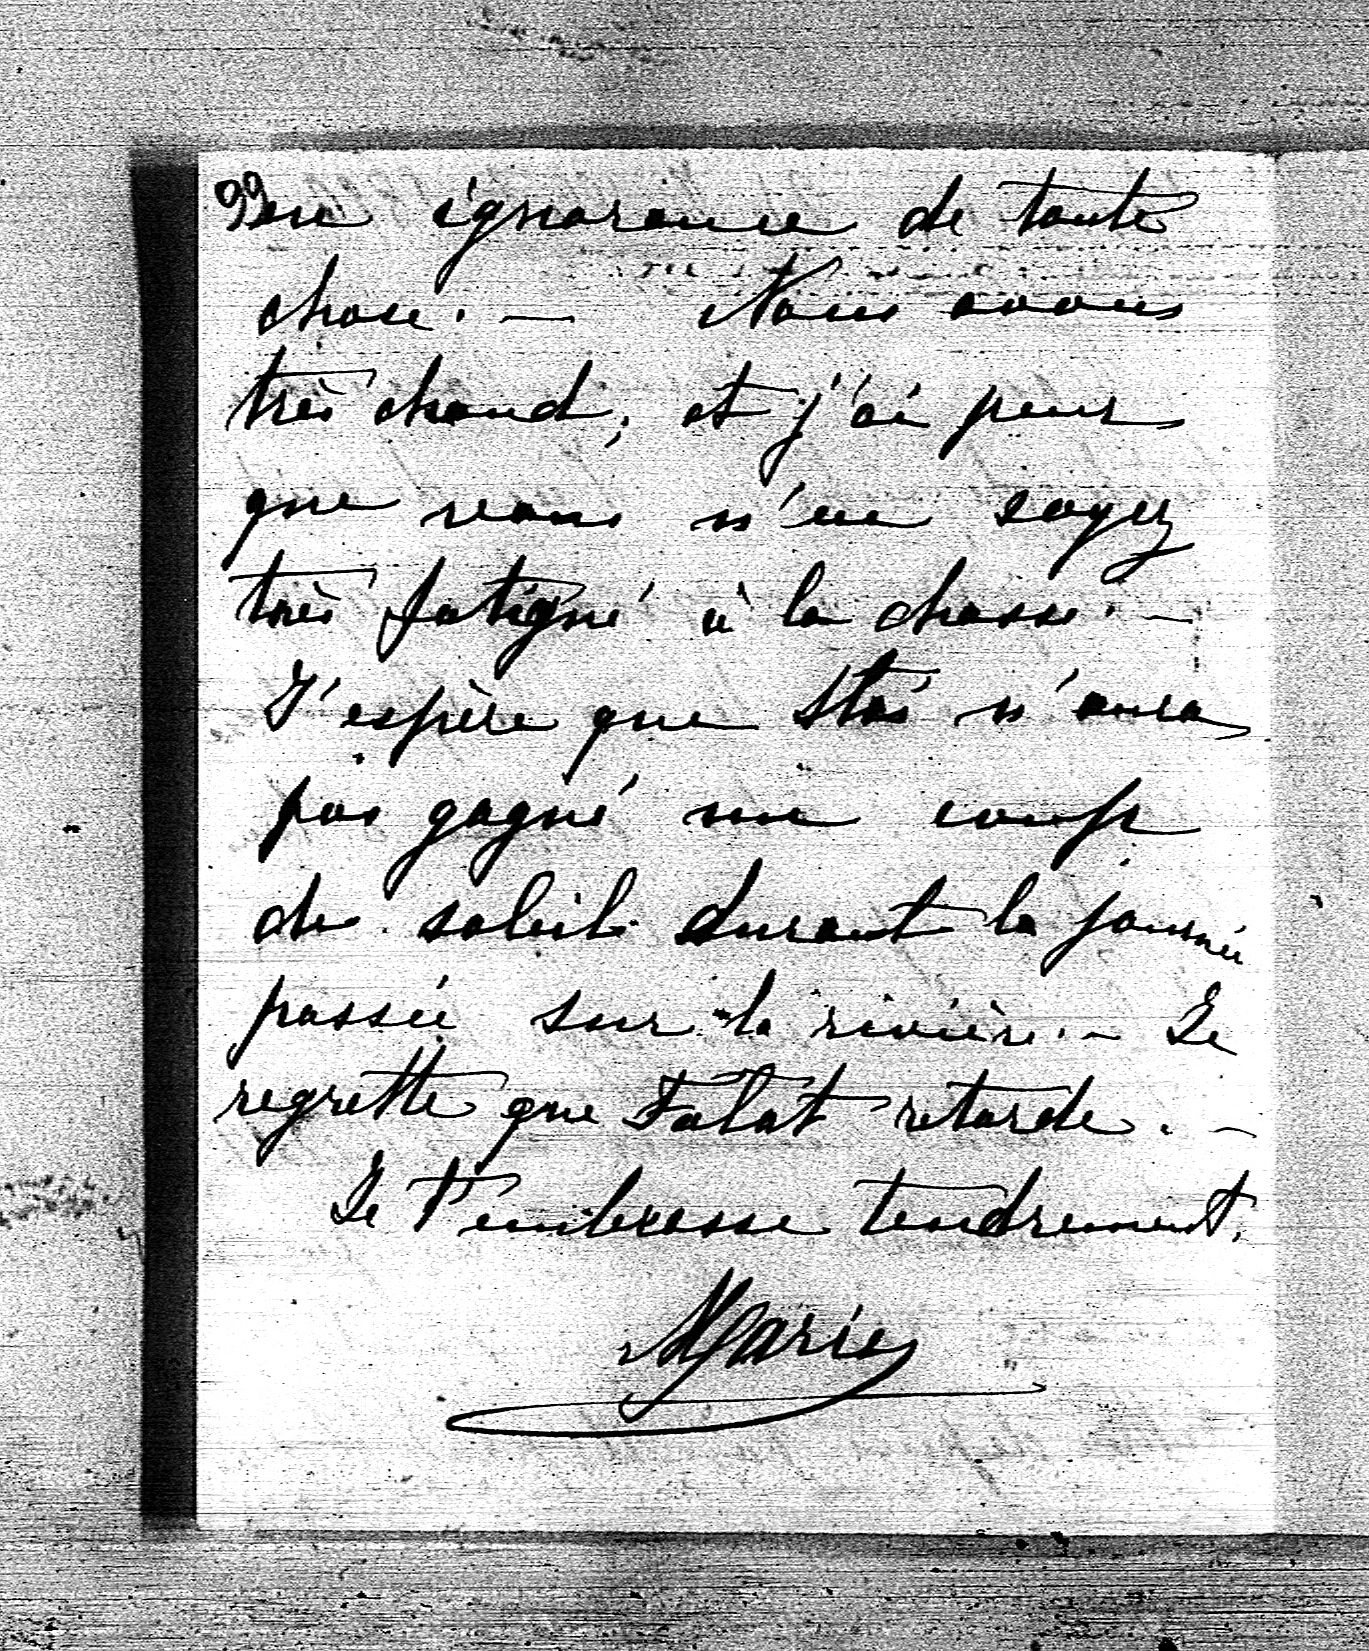 99
en ignorance de toute
chose. — Nous avons
très chaud, et j'ai peur
que vous n'en soyez
très fatigué à la chasse. —
J'espère que Stas n'aura
pas gagné un coup
de soleil durant la journée
passée sur la rivière. — Je
regrette que Falat retarde. —
Je t'embrasse tendrement.
Marie